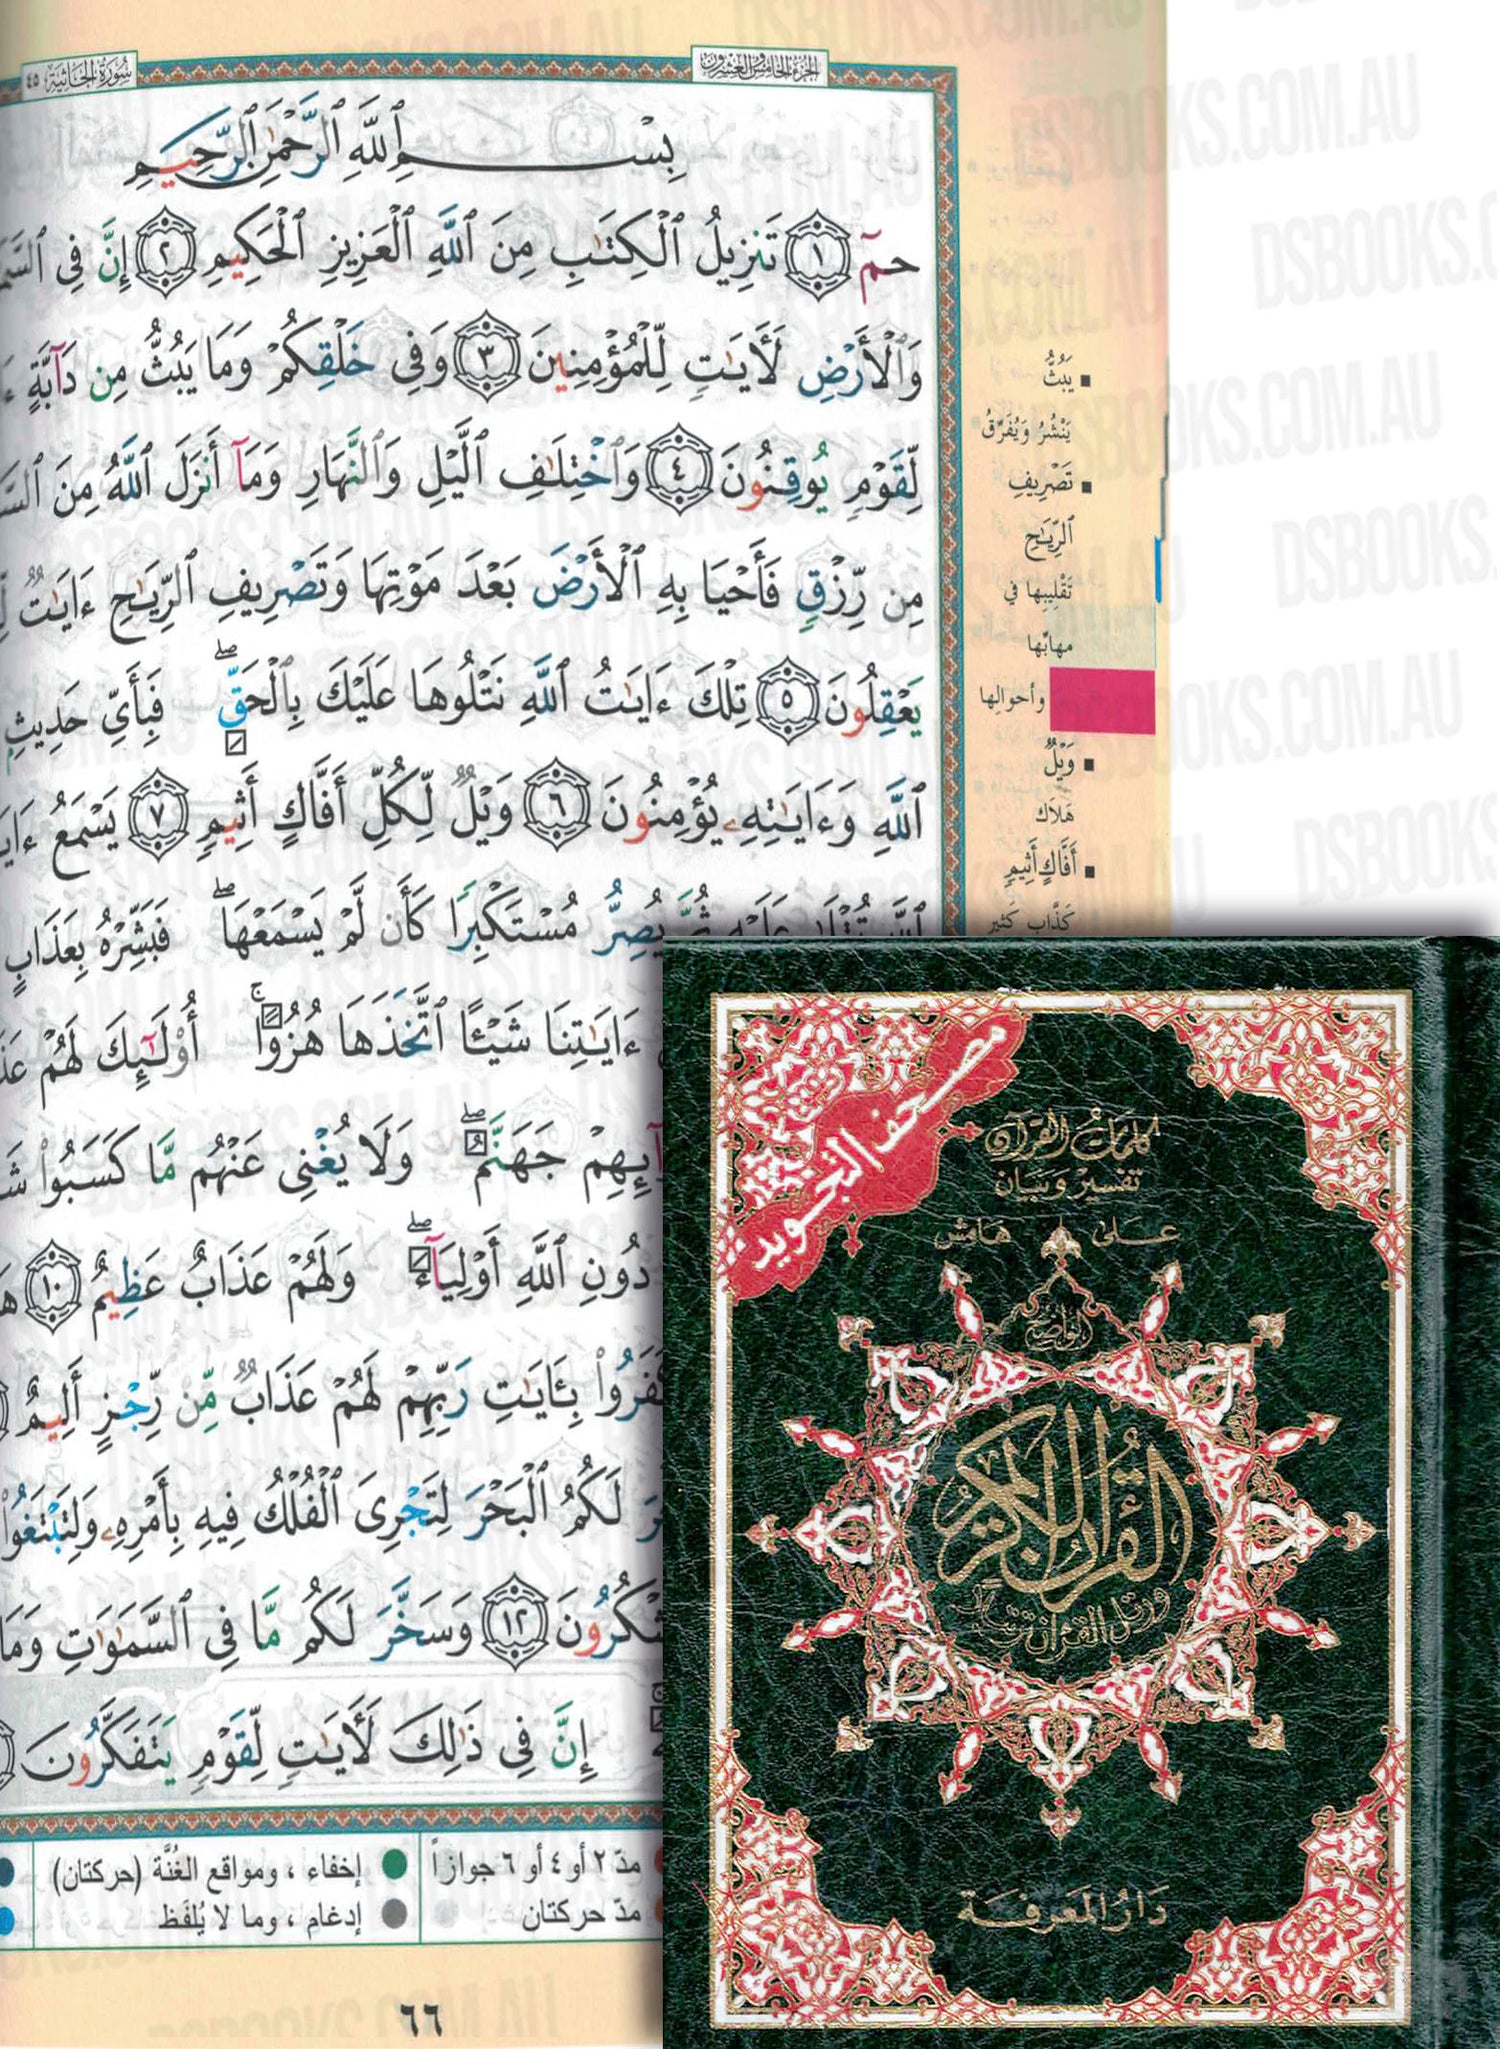 الجزء الخامس والعشرون
سورة الجاثية ٤٥
بِسْمِ ٱللَّهِ ٱلرَّحْمَٰنِ ٱلرَّحِيمِ
حمٓ ١ تَنزِيلُ ٱلْكِتَٰبِ مِنَ ٱللَّهِ ٱلْعَزِيزِ ٱلْحَكِيمِ ٢ إِنَّ فِى
وَٱلْأَرْضِ لَءَايَٰتٍ لِّلْمُؤْمِنِينَ ٣ وَفِى خَلْقِكُمْ وَمَا يَبُثُّ مِن دَآبَّةٍ
لِّقَوْمٍ يُوقِنُونَ ٤ وَٱخْتِلَٰفِ ٱلَّيْلِ وَٱلنَّهَارِ وَمَآ أَنزَلَ ٱللَّهُ مِنَ
مِن رِّزْقٍ فَأَحْيَا بِهِ ٱلْأَرْضَ بَعْدَ مَوْتِهَا وَتَصْرِيفِ ٱلرِّيَٰحِ ءَايَٰتٌ
يَعْقِلُونَ ٥ تِلْكَ ءَايَٰتُ ٱللَّهِ نَتْلُوهَا عَلَيْكَ بِٱلْحَقِّ ۖ فَبِأَىِّ حَدِيثٍ
ٱللَّهِ وَءَايَٰتِهِۦ يُؤْمِنُونَ ٦ وَيْلٌ لِّكُلِّ أَفَّاكٍ أَثِيمٍ ٧ يَسْمَعُ
يُصِرُّ مُسْتَكْبِرًا كَأَن لَّمْ يَسْمَعْهَا ۖ فَبَشِّرْهُ بِعَذَابٍ
ءَايَٰتِنَا شَيْـًٔا ٱتَّخَذَهَا هُزُوًا ۚ أُو۟لَٰٓئِكَ لَهُمْ
جَهَنَّمُ ۖ وَلَا يُغْنِى عَنْهُم مَّا كَسَبُوا۟
دُونِ ٱللَّهِ أَوْلِيَآءَ ۖ وَلَهُمْ عَذَابٌ عَظِيمٌ ١٠
بِـَٔايَٰتِ رَبِّهِمْ لَهُمْ عَذَابٌ مِّن رِّجْزٍ أَلِيمٌ
لَكُمُ ٱلْبَحْرَ لِتَجْرِىَ ٱلْفُلْكُ فِيهِ بِأَمْرِهِۦ وَلِتَبْتَغُوا۟
١٢ وَسَخَّرَ لَكُم مَّا فِى ٱلسَّمَٰوَٰتِ وَمَا
إِنَّ فِى ذَٰلِكَ لَءَايَٰتٍ لِّقَوْمٍ يَتَفَكَّرُونَ
يَبُثُّ
يَنْشُرُ وَيُفَرِّقُ
تَصْرِيفِ
ٱلرِّيَٰحِ
تَقْلِيبِها في
مهابِّها
وأحوالِها
وَيْلٌ
هَلَاك
أَفَّاكٍ أَثِيمٍ
كَذَّاب كَثير
مدّ ٢ أو ٤ أو ٦ جوازاً
مدّ حركتان
إخفاء ، ومواقع الغُنَّة (حركتان)
إدغام ، وما لا يُلفَظ
٦٦
مصحف التجويد
كلمات القرآن
تفسير وبيان
على هامش
القرآن الكريم
ورتل القرآن ترتيلا
دار المعرفة
DSBOOKS.COM.AU